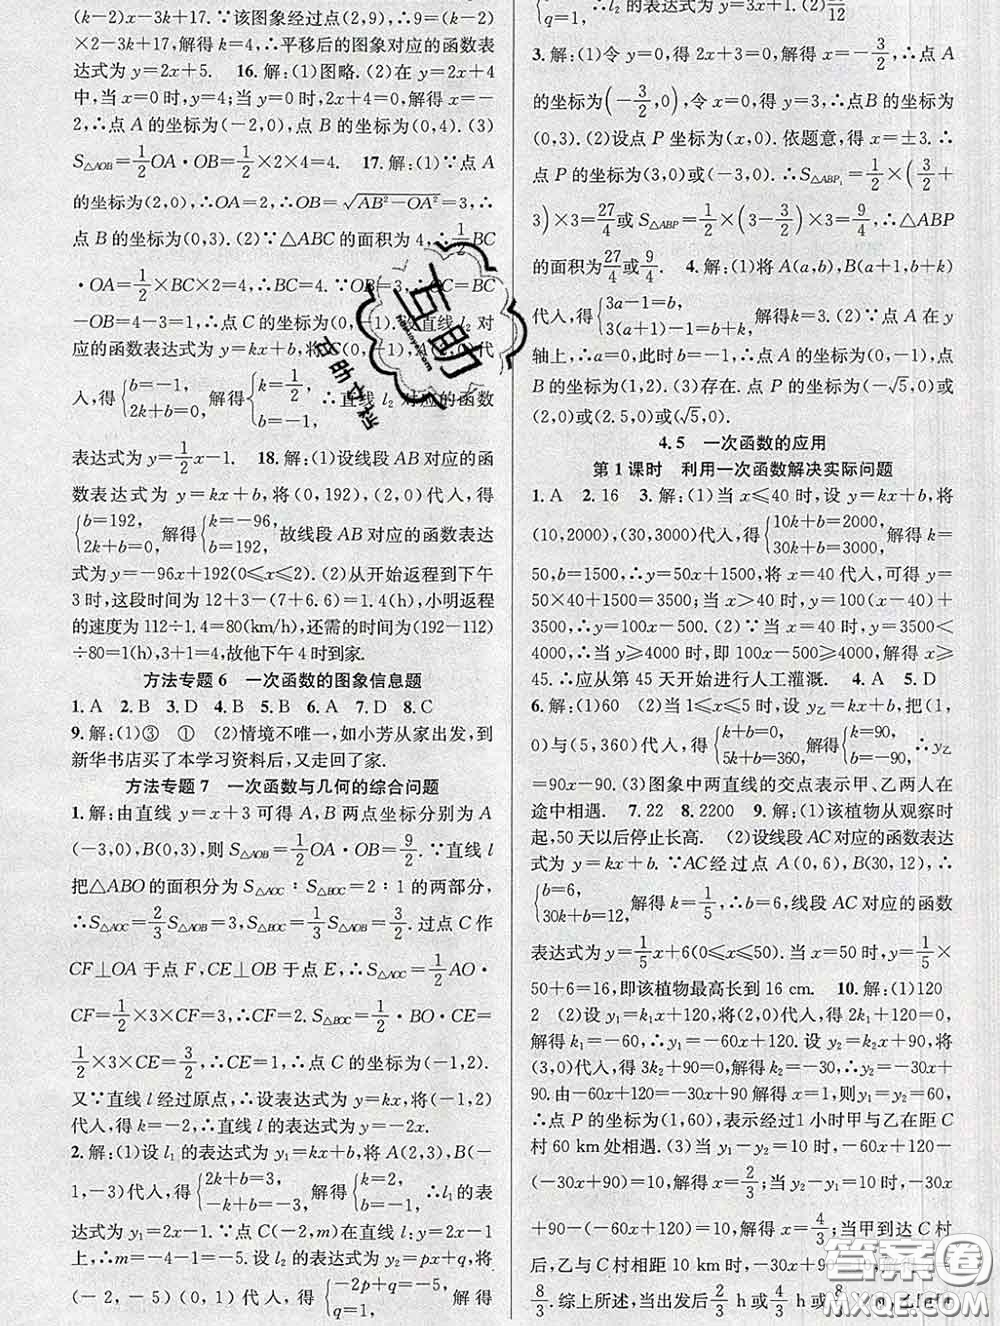 (k-2)x-3k+17.∵该图象经过点(2,9),∴9=(k-2)
×2-3k+17,解得k=4,∴平移后的图象对应的函数表
达式为y=2x+5. 16.解:(1)图略.(2)在y=2x+4
中,当x=0时,y=4;当y=0时,2x+4=0,解得x=-
2,∴点A的坐标为(-2,0),点B的坐标为(0,4).(3)
S△AOB=1/2 OA·OB=1/2×2×4=4. 17.解:(1)∵点A
的坐标为(2,0),∴OA=2,∴OB=√(AB²-OA²)=3,∴
点B的坐标为(0,3).(2)∵△ABC的面积为4,∴1/2 BC
·OA=1/2×BC×2=4,∴BC=4.∵OB=3,∴OC=BC
-OB=4-3=1,∴点C的坐标为(0,-1).设直线l₂对
应的函数表达式为y=kx+b,将 代
人,得{b=-1, 2k+b=0, 解得{k=1/2, b=-1. ∴直线l₂对应的函数
表达式为y=1/2 x-1. 18.解:(1)设线段AB对应的函
数表达式为y=kx+b,将(0,192),(2,0)代入,得
{b=192, 2k+b=0, 解得{k=-96, b=192. 故线段AB对应的函数表达
式为y=-96x+192(0⩽x⩽2).(2)从开始返程到下午
3时,这段时间为12+3-(7+6.6)=1.4(h),小明返程
的速度为112÷1.4=80(km/h),还需的时间为(192-112)
÷80=1(h),3+1=4,故他下午4时到家.
方法专题6 一次函数的图象信息题
1.A 2.B 3.D 4.B 5.B 6.A 7.D 8.C
9.解:(1)③ ① (2)情境不唯一,如小芳从家出发,到
新华书店买了本学习资料后,又走回了家.
方法专题7 一次函数与几何的综合问题
1.解:由直线y=x+3可得A,B两点坐标分别为A
(-3,0),B(0,3),则S△AOB=1/2 OA·OB=9/2.∵直线l
把△ABO的面积分为S△AOC∶S△BOC=2∶1的两部分,
∴S△AOC=2/3 S△AOB=3,S△BOC=1/3 S△AOB=3/2.过点C作
CF⊥OA于点F,CE⊥OB于点E,∴S△AOC=1/2 AO·
CF=1/2×3×CF=3,∴CF=2.S△BOC=1/2·BO·CE=
1/2×3×CE=3/2,∴CE=1,∴点C的坐标为(-1,2).
又∵直线l经过原点,∴设表达式为y=kx,将(-1,2)
代入,得k=-2,∴直线l的表达式为y=-2x.
2.解:(1)设l₁的表达式为y₁=kx+b,将A(2,3),B(-
1,-3)代入,得{2k+b=3, -k+b=-3, 解得{k=2, b=-1. ∴l₁的表
达式为y=2x-1.∵点C(-2,m)在直线l:y=2x-1
上,∴m=-4-1=-5.设l₂的表达式为y₂=px+q,将
(-2,-5)(0,1)代入,得{-2p+q=-5, q=1, 解得
{ q=1, ∴l₂的表达式为y=3x+1.(2) /12
3.解:(1)令y=0,得2x+3=0,解得x=-3/2,∴点A
的坐标为(-3/2,0),令x=0,得y=3,∴点B的坐标为
(0,3).(2)设点P坐标为(x,0).依题意,得x=±3.∴
点P的坐标为(3,0)或(-3,0).∴S△ABP₁=1/2×(3/2+
3)×3=27/4或S△ABP=1/2×(3-3/2)×3=9/4,∴△ABP
的面积为27/4或9/4. 4.解:(1)将A(a,b),B(a+1,b+k)
代人,得{3a-1=b, 3(a+1)-1=b+k, 解得k=3.(2)∵点A在y
轴上,∴a=0,此时b=-1,∴点A的坐标为(0,-1),点
B的坐标为(1,2).(3)存在.点P的坐标为(-√5,0)或
(2,0)或(2.5,0)或(√5,0).
4.5 一次函数的应用
第1课时 利用一次函数解决实际问题
1.A 2.16 3.解:(1)当x⩽40时,设y=kx+b,将
(10,2000),(30,3000)代入,得{10k+b=2000, 30k+b=3000, 解得k=
50,b=1500,∴y=50x+1500,将x=40代入,可得y=
50×40+1500=3500;当x>40时,y=100(x-40)+
3500,∴y=100x-500.(2)∵当x=40时,y=3500<
4000,∴当y⩾4000时,100x-500⩾4000,解得x⩾
45.∴应从第45天开始进行人工灌溉. 4.A 5.D
6.解:(1)60 (2)当1⩽x⩽5时,设y乙=kx+b,把(1,
0),(5,360)代入,得{k+b=0, 5k+b=360, 解得{k=90, b=-90, ∴y乙
=90x-90.(3)图象中两直线的交点表示甲、乙两人在
途中相遇. 7.22 8.2200 9.解:(1)该植物从观察时
起,50天以后停止长高. (2)设线段AC对应的函数表达
式为y=kx+b.∵AC经过点A(0,6),B(30,12),∴
{b=6, 30k+b=12, 解得k=1/5,b=6,∴线段AC对应的函数
表达式为y=1/5 x+6(0⩽x⩽50).当x=50时,y=1/5×
50+6=16,即该植物最高长到16 cm. 10.解:(1)120
2 (2)设y₁=k₁x+120,将(2,0)代人,得2k₁+120=0,
解得k₁=-60,∴y₁=-60x+120.设y₂=k₂x+90,将(3,
0)代入,得3k₂+90=0,解得k₂=-30,∴y₂=-30x+
90.由-60x+120=-30x+90解得x=1,则y₁=y₂=60,
∴点P的坐标为(1,60),表示经过1小时甲与乙在距C
村60 km处相遇.(3)当y₁-y₂=10时,-60x+120-
(-30x+90)=10,解得x=2/3;当y₂-y₁=10时,-30x
+90-(-60x+120)=10,解得x=4/3;当甲到达C村
后,乙与C村相距10 km时,-30x+90=10,解得x=
8/3.综上所述,当出发后2/3 h或4/3 h或8/3
互助
互助文档
答案卷
MXQE.COM